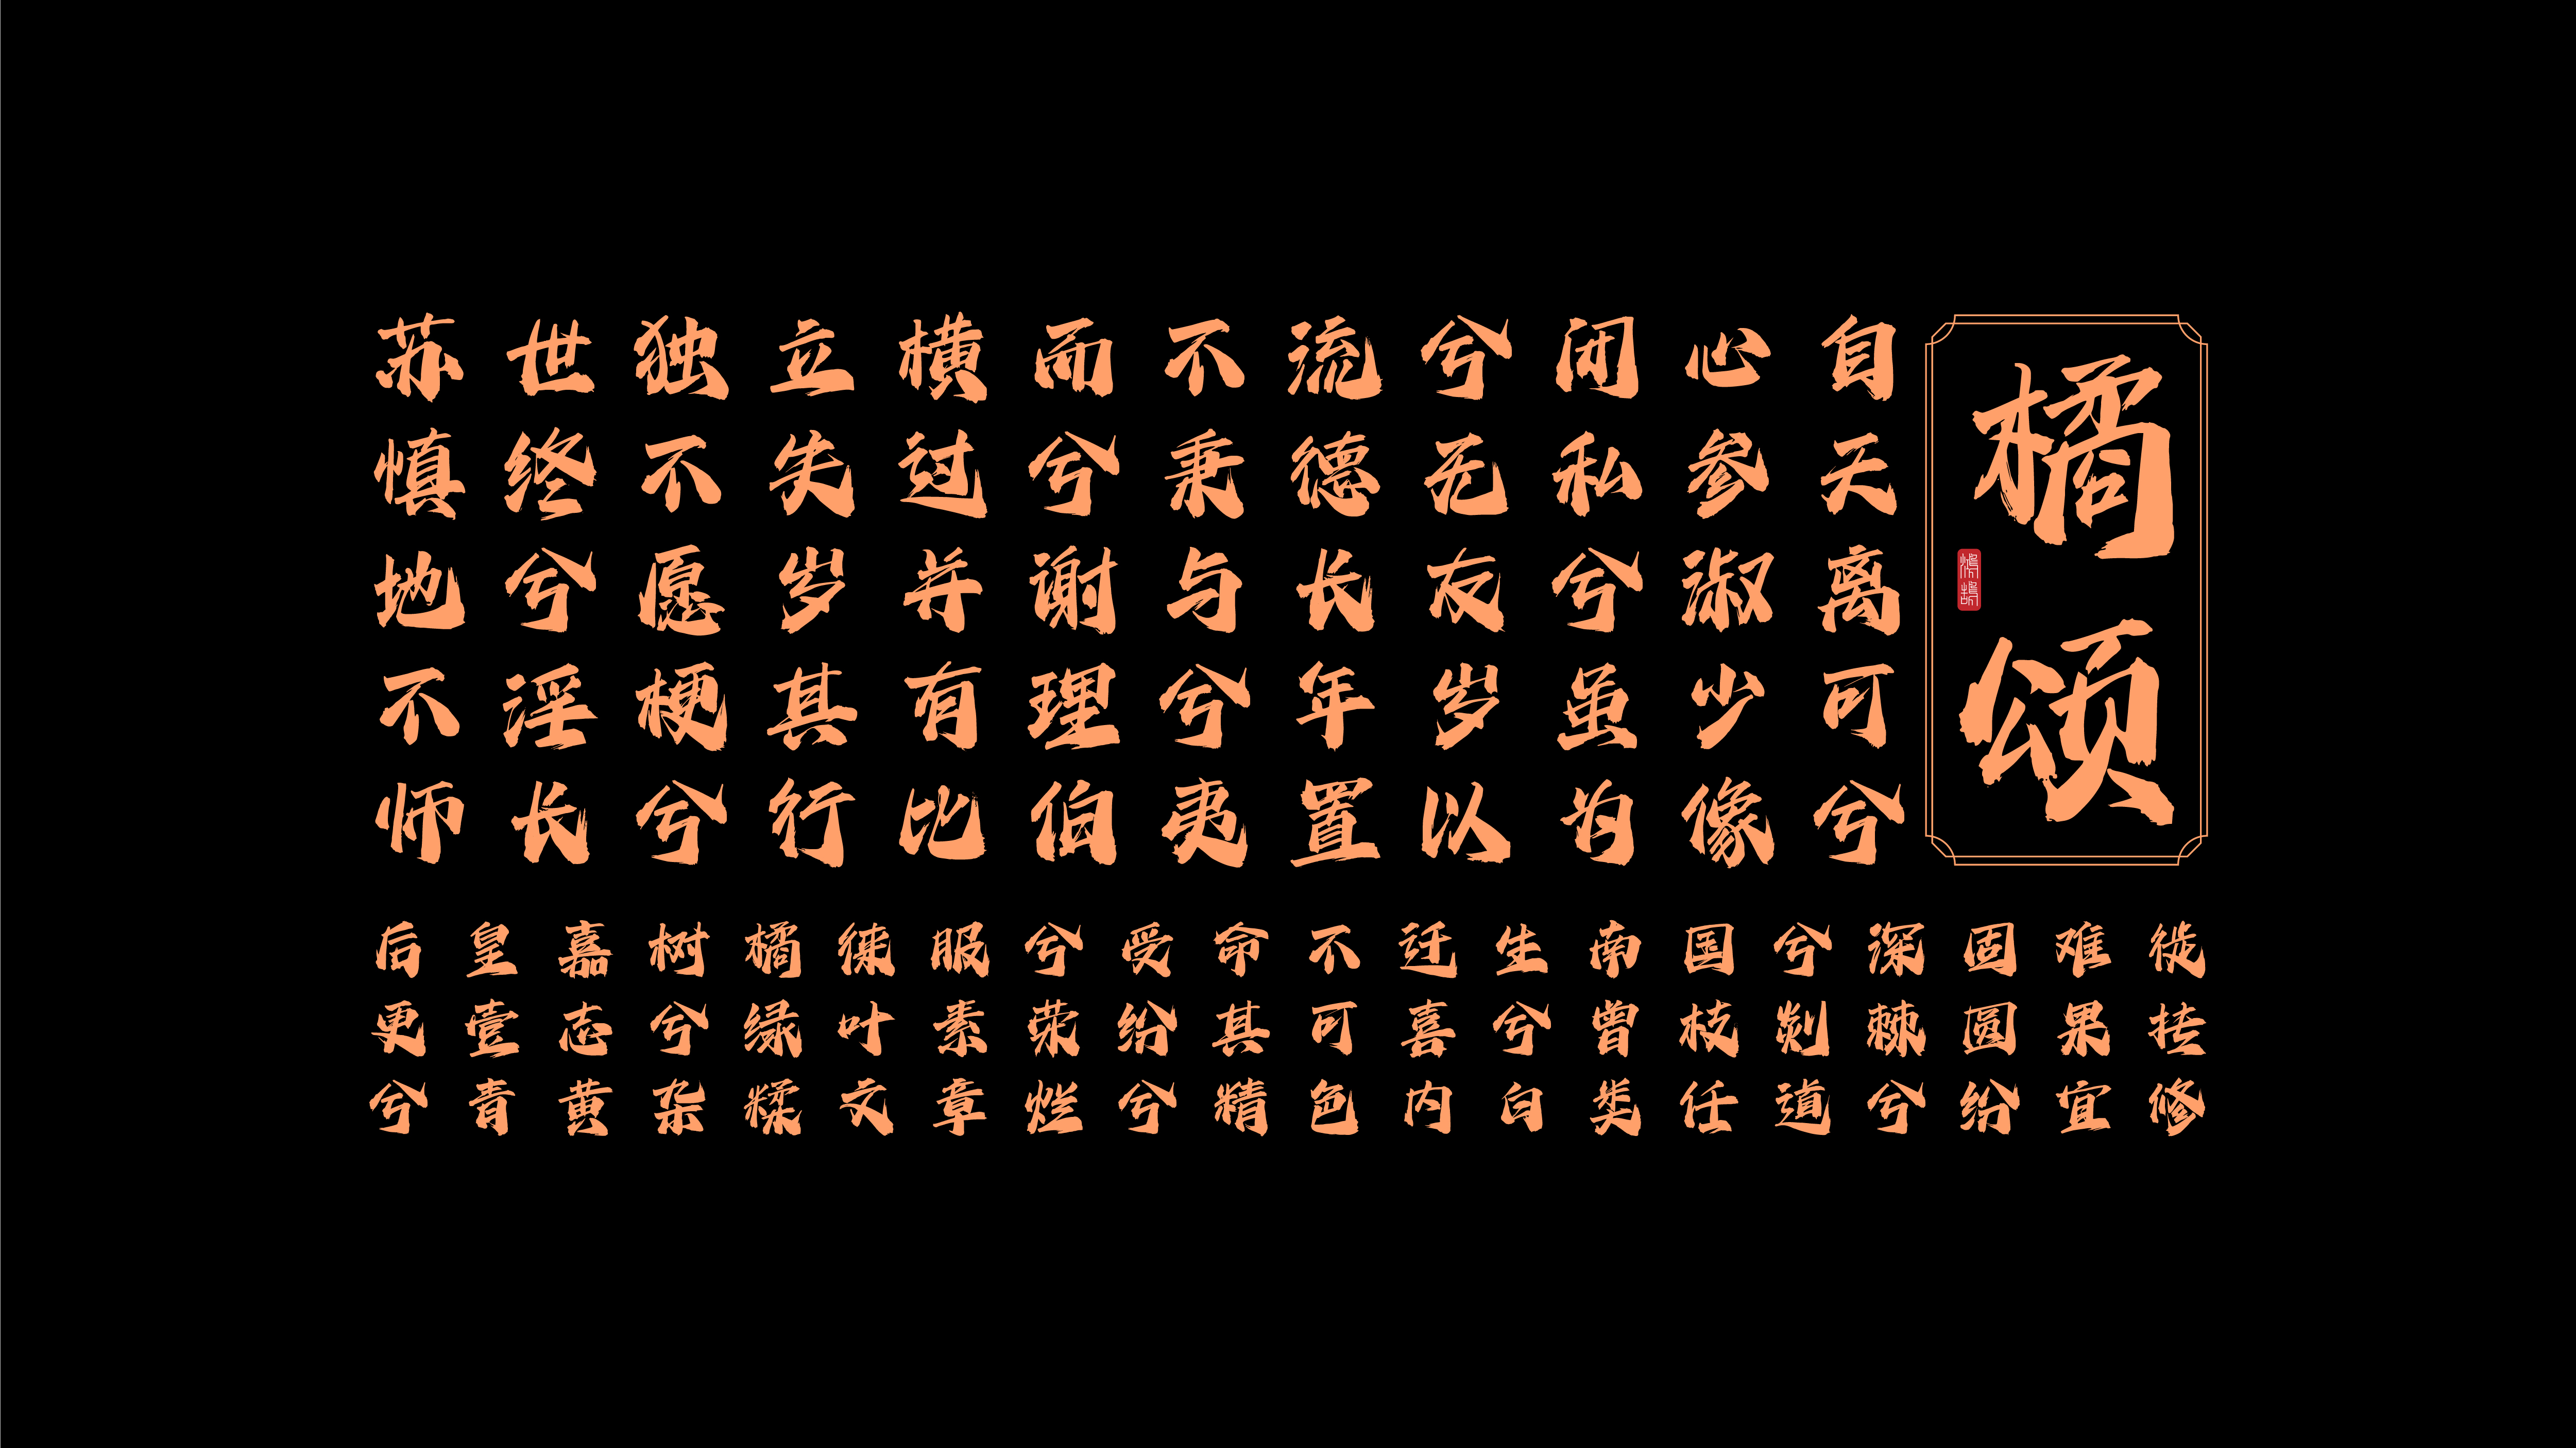 橘颂
苏世独立横而不流兮闭心自
慎终不失过兮秉德无私参天
地兮愿岁并谢与长友兮淑离
不淫梗其有理兮年岁虽少可
师长兮行比伯夷置以为像兮
后皇嘉树橘徕服兮受命不迁生南国兮深固难徙
更壹志兮绿叶素荣纷其可喜兮曾枝剡棘圆果抟
兮青黄杂糅文章烂兮精色内白类任道兮纷宜修